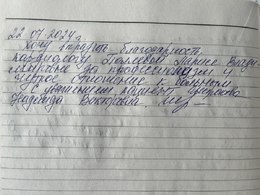 22.07.2024г.
Хочу выразить благодарность
кардиологу Ларисе Влади
мировне за профессионализм и
чуткое отношение к больным
С уважением, пациент
Надежда Викторовна.